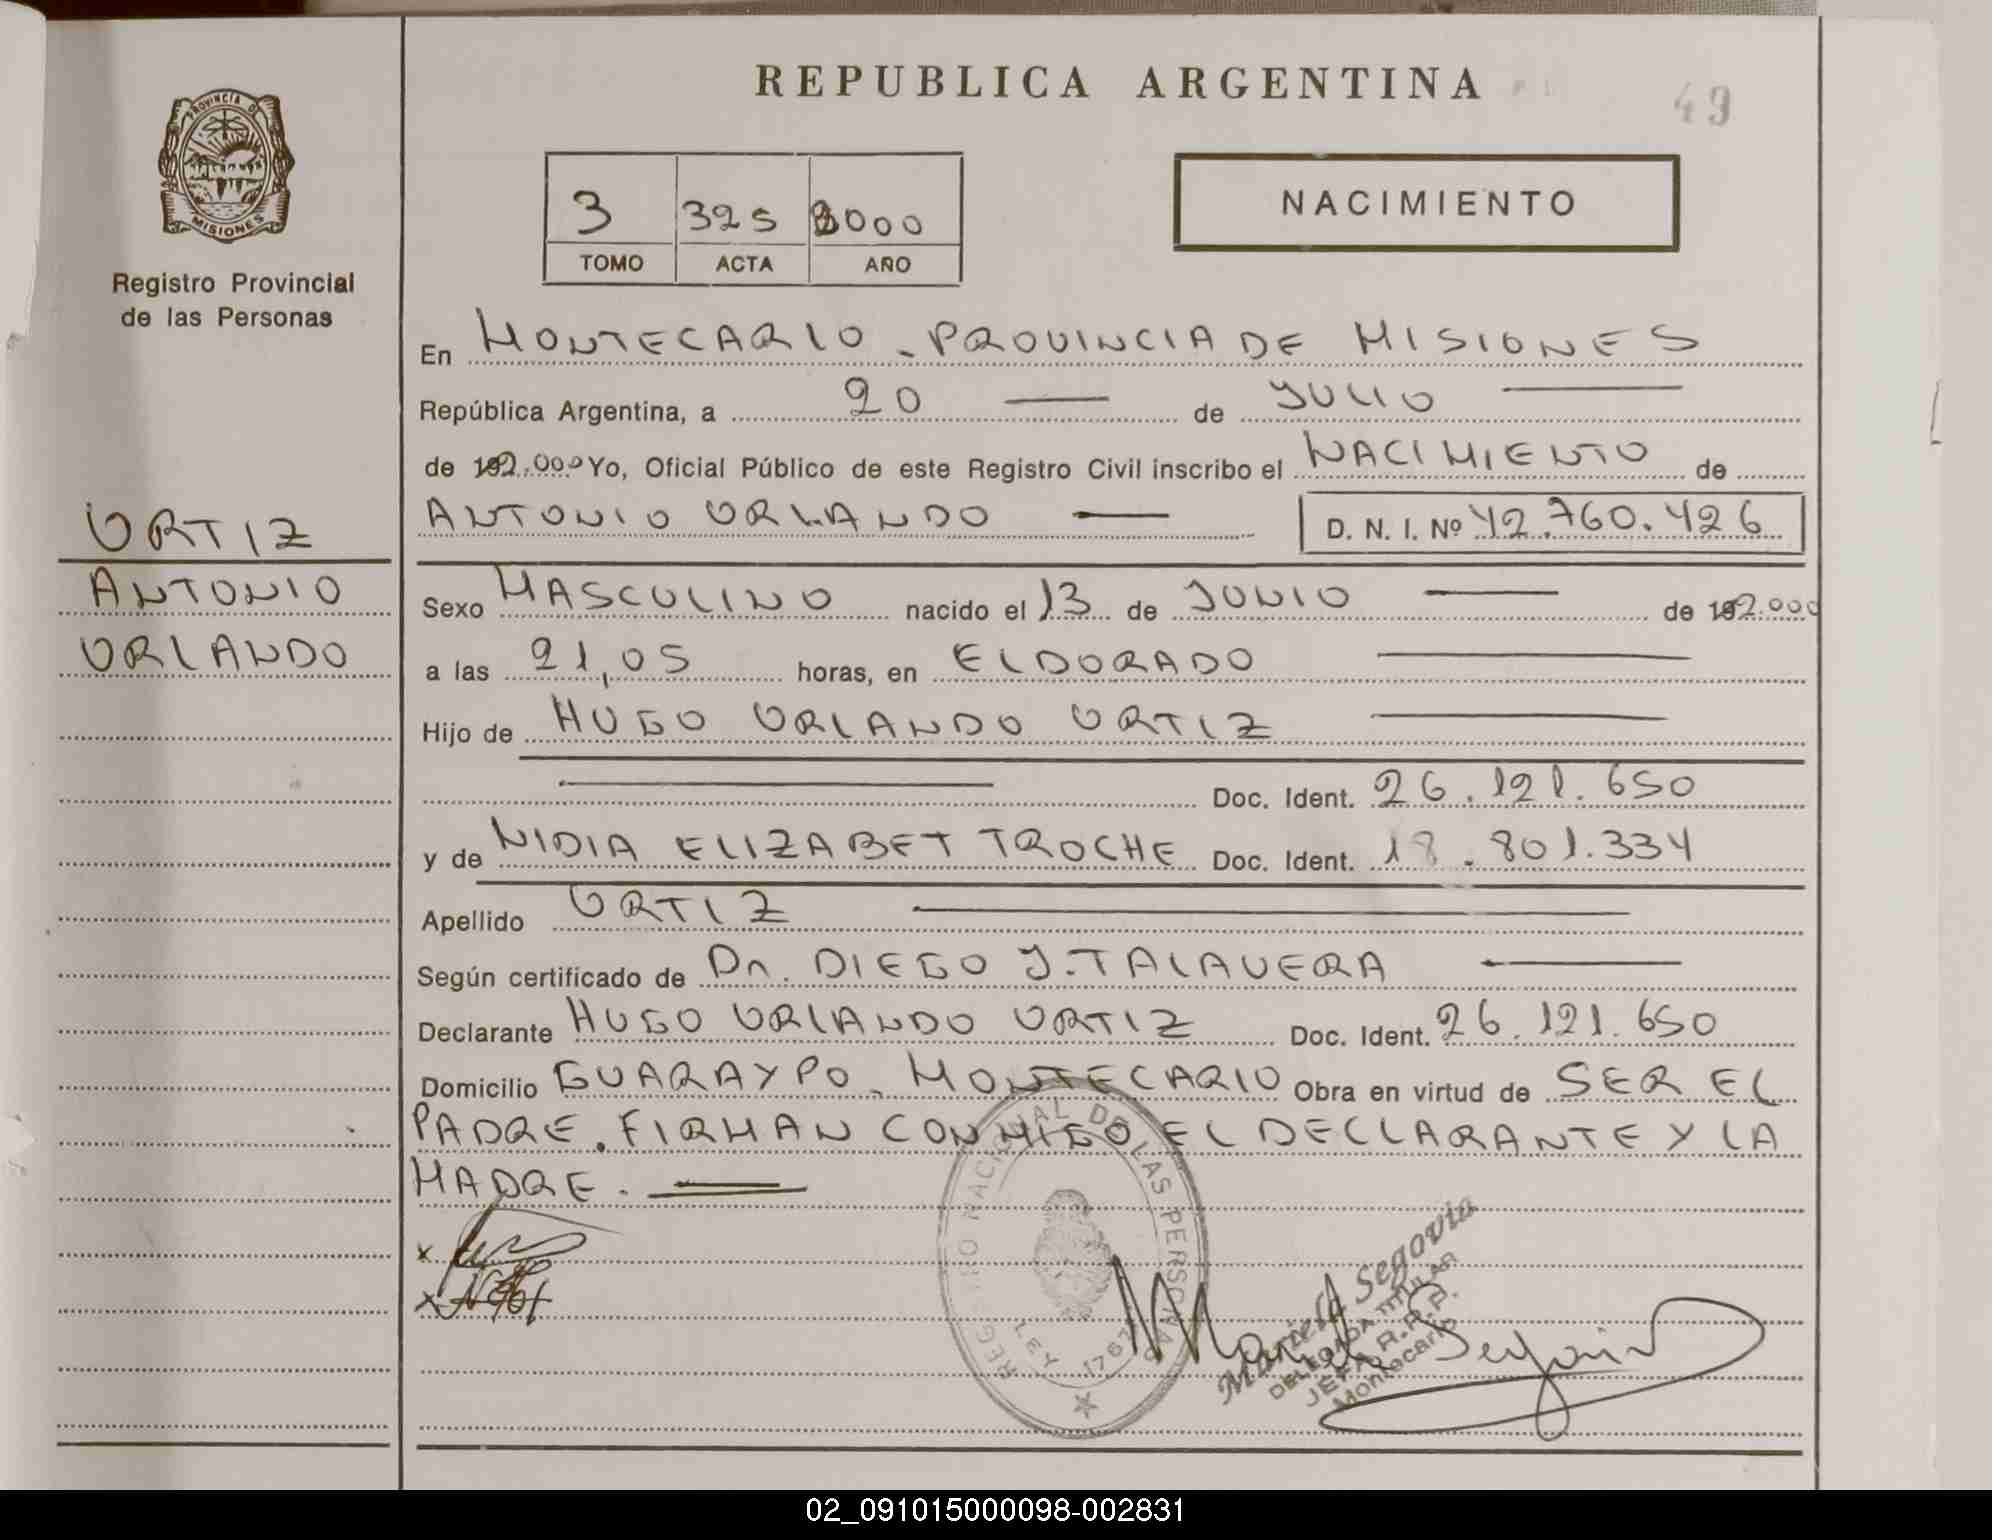 REPUBLICA ARGENTINA
49
PROVINCIA DE
MISIONES
Registro Provincial
de las Personas
3 325 2000
TOMO ACTA AÑO
NACIMIENTO
En MONTECARLO - PROVINCIA DE MISIONES
República Argentina, a 20 de JULIO
de 192.000 Yo, Oficial Público de este Registro Civil inscribo el NACIMIENTO de
ANTONIO ORLANDO D. N. I. Nº 42.760.426
ORTIZ
ANTONIO
ORLANDO
Sexo MASCULINO nacido el 13 de JUNIO de 192.000
a las 21,05 horas, en ELDORADO
Hijo de HUGO ORLANDO ORTIZ
Doc. Ident. 26.121.650
y de NIDIA ELIZABET TROCHE Doc. Ident. 18.801.334
Apellido ORTIZ
Según certificado de Dr. DIEGO J. TALAVERA
Declarante HUGO ORLANDO ORTIZ Doc. Ident. 26.121.650
Domicilio GUARAYPO. MONTECARLO Obra en virtud de SER EL
PADRE. FIRMAN CONMIGO EL DECLARANTE Y LA
MADRE.
REGISTRO NACIONAL DE LAS PERSONAS
LEY 1767
Mariela Segovia
DELEGADA TITULAR
JEFA R.R.P.
Montecarlo
Mariela Segovia
02_091015000098-002831